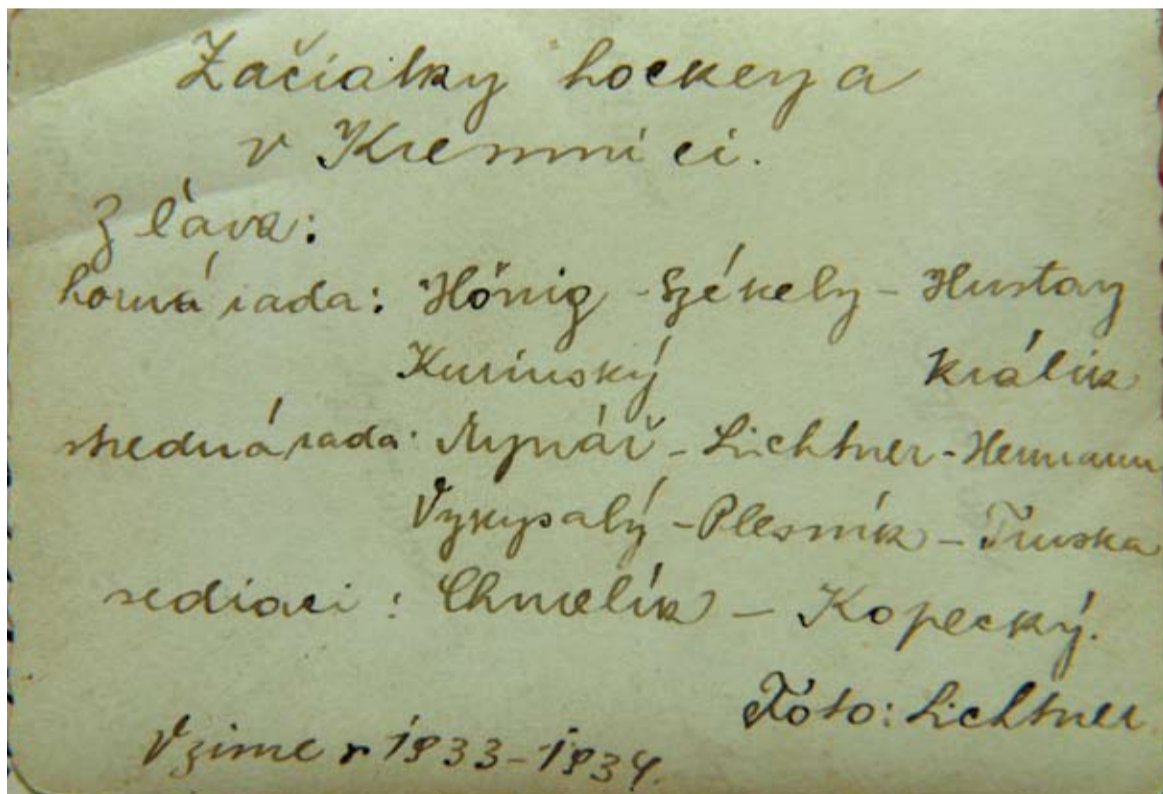 Začiatky hockeya
v Kremnici.
Z ľava:
horná rada: Hőnig - Székely - Hustay
Kurinský Králik
stredná rada: Mynář - Lichtner - Hermann
Vykysalý - Plesník - Truska
sediaci: Chmelík - Kopecký.
Fóto: Lichtner
V zime r 1933-1934.